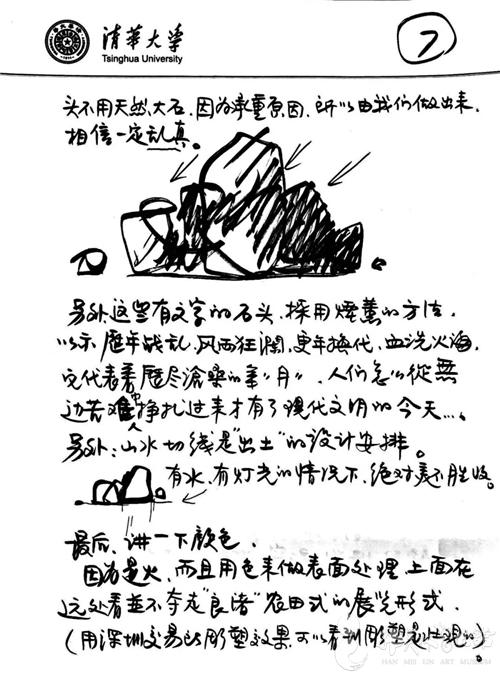 清华大学
Tsinghua University
7
头不用天然大石,因为承重原因,所以由我们做出来,
相信一定乱真。
另外这里有文字的石头,採用烟薰的方法,
以示歷年战乱,风雨狂澜,更年换代,血洗火海,
它代表着歷尽滄桑的幸"月",人们怎么從無
边苦难中挣扎过来才有了现代文明的今天…,
人
另外:山水切线是"出土"的设计安排。
有水、有灯光的情况下,绝对美不胜收。
最后,讲一下颜色,
因为是火,而且用色来做表面处理,上面在
远处看並不夺走"良渚"农田式的展览形式.
(用深圳交易所彫塑效果,可以看到彫塑是壮观的)
HAN MEI LIN ART MUSEUM